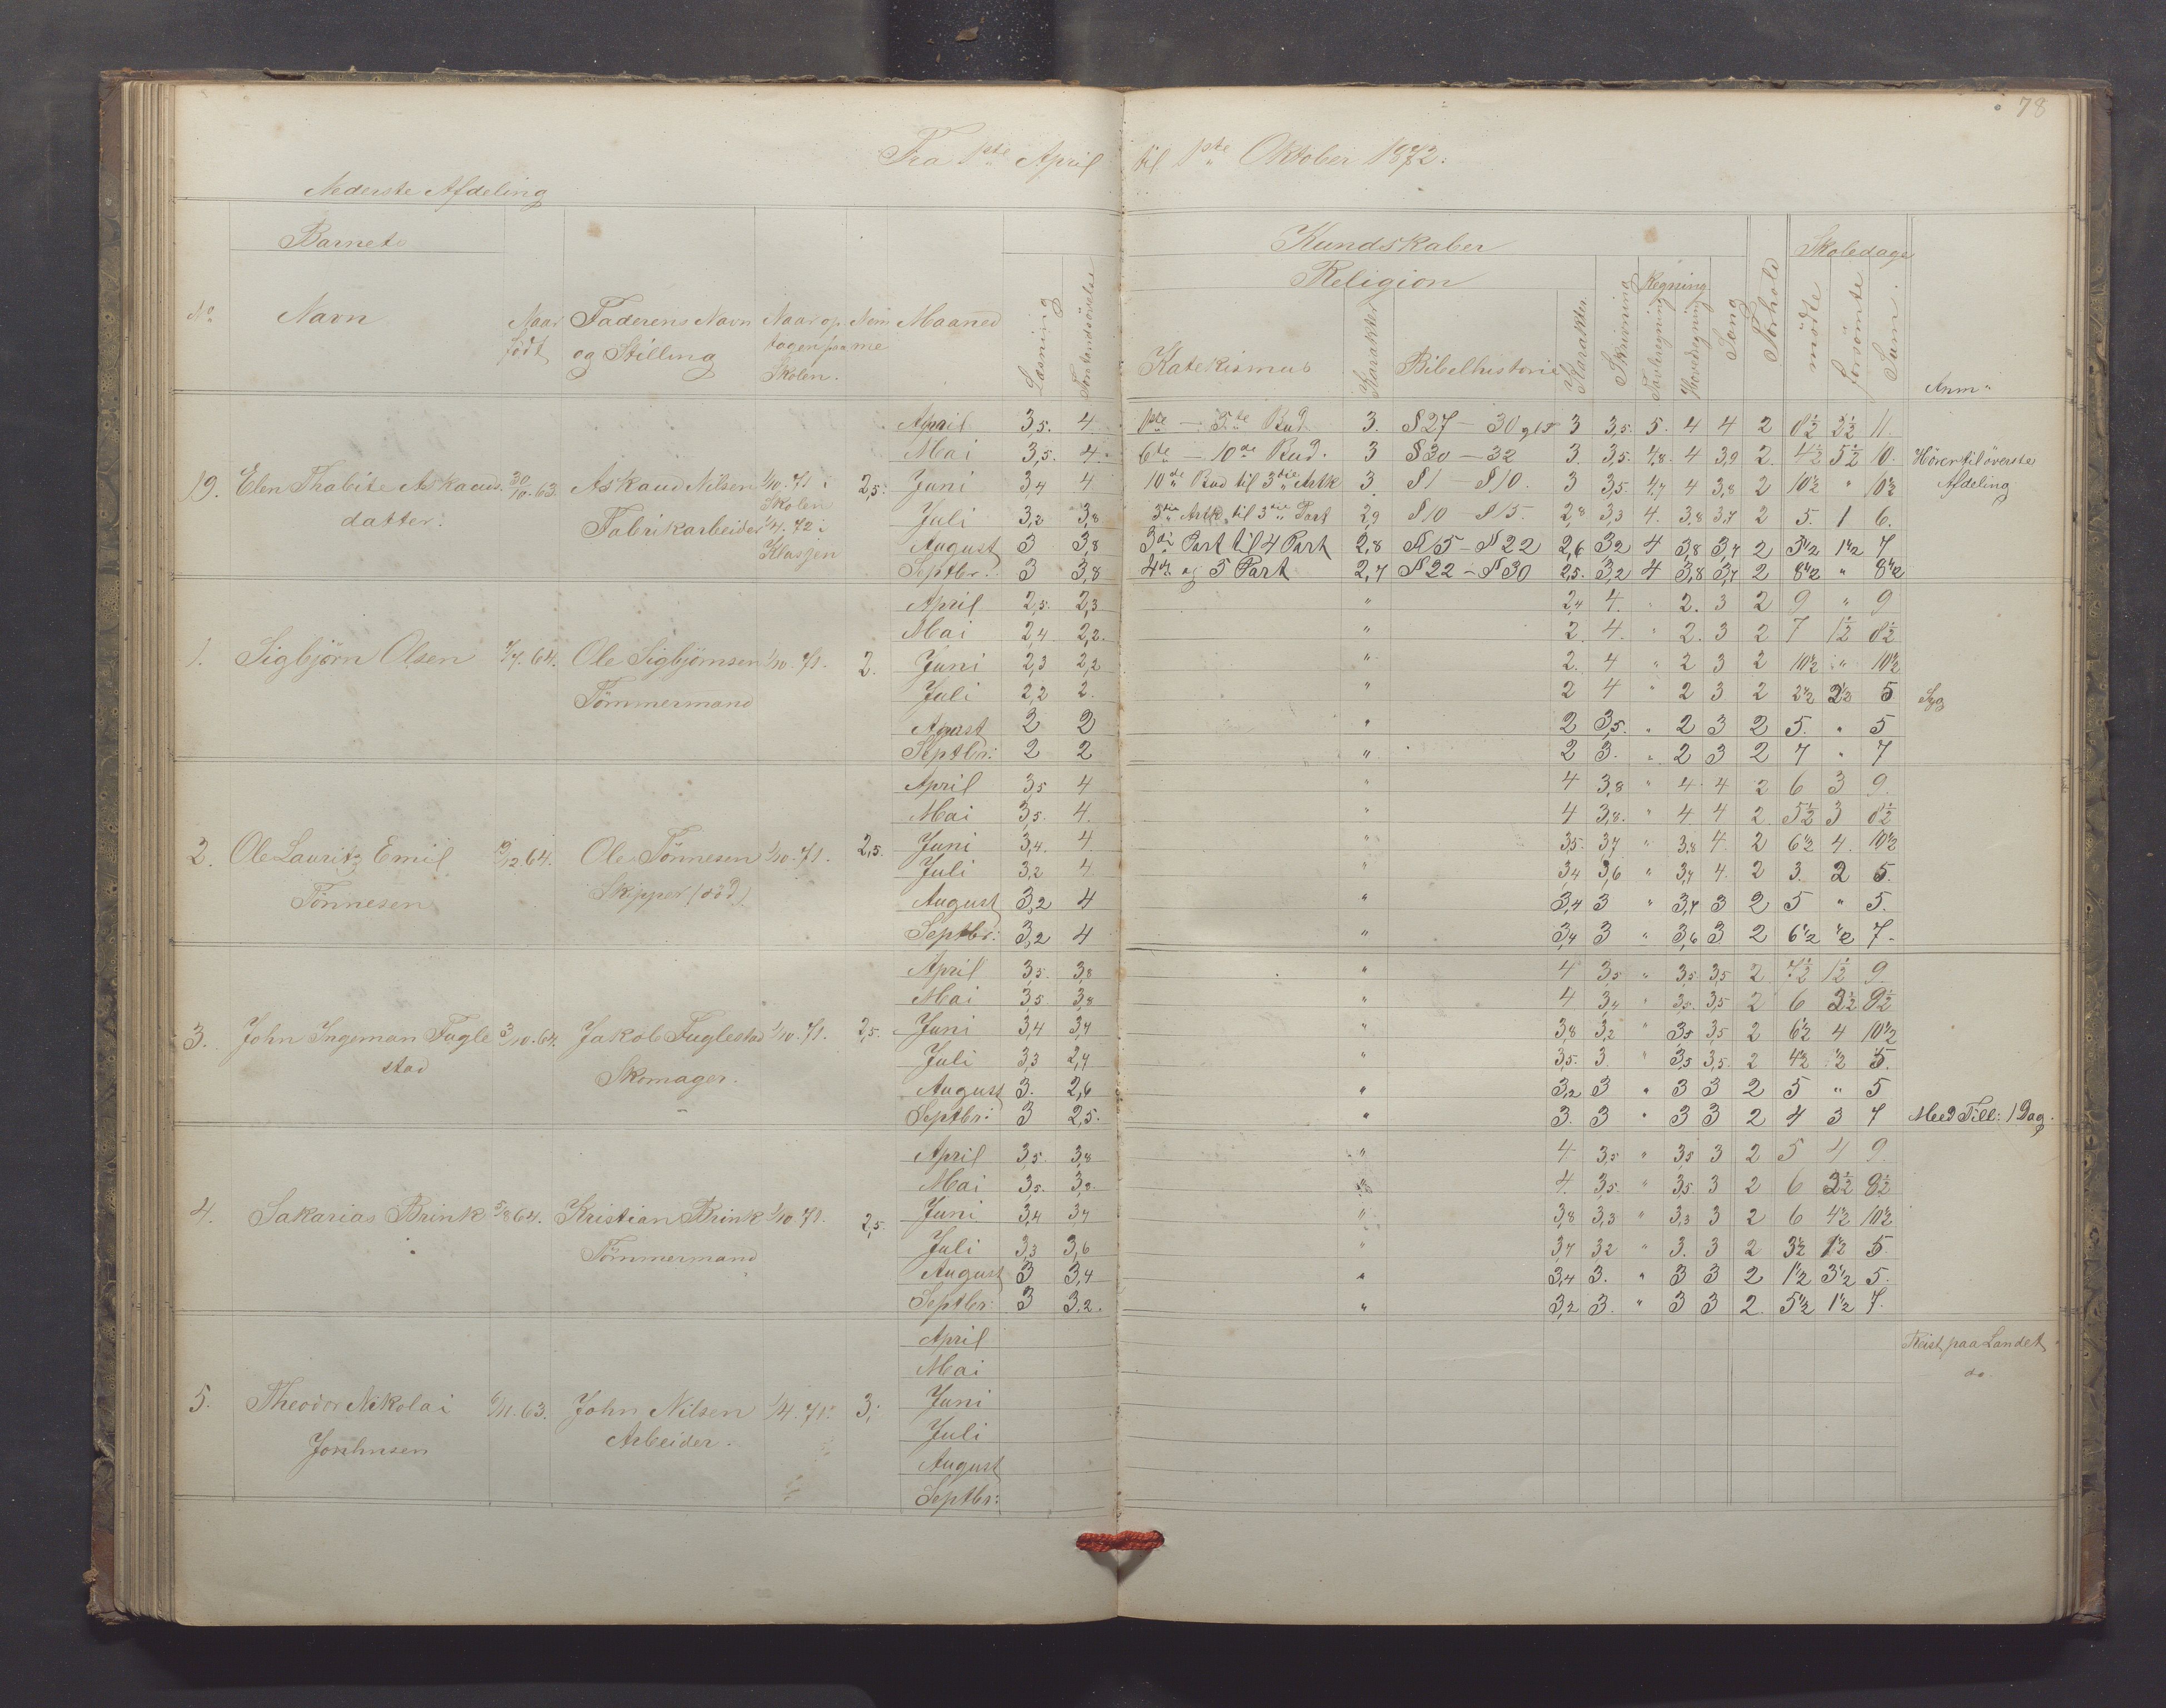 78
Fra 1ste April til 1ste Oktober 1872.
Nederste Afdeling
Barnets Kundskaber Skoledage
Religion Regning
No Navn Naar født Faderens Navn og Stilling Naar optagen paa Skolen. Maaned Læsning Forstandsøvelse Katekismus Karakter Bibelhistorie Karakter Skrivning Tavleregning Hovedregning Sang Forhold mødte forsømte Sum. Anm.
April 3,5. 4 1ste — 5te Bud 3. §27 — 30 3 3,5. 5. 4 4 2 8½ 2½ 11.
Mai 3,5. 4. 6te — 10de Bud. 3 §30 — 32 3. 3,5. 4,8. 4 3,9 2. 4½ 5½ 10. Hører til øverste
19. Elen Thabite Askauds- 30/10.63. Askaud Nilsen 1/10.71 i 2,5. Juni 3,4 4 10de Bud til 3die Artk 3. §1 — §10. 3 3,5. 4,7 4 3,8 2 10½ " 10½ Afdeling
datter. Fabrikarbeider Skolen 1/4.72 i Juli 3,2 3,8 3die Artk. til 3die Part 2,9 §10 — §15. 2,8 3,3 4. 3,8 3,7 2 5. 1 6.
Klassen August 3 3,8 3die Part til 4 Part 2,8 §15 — §22 2,6 3,2 4 3,8 3,7 2 5½ 1½ 7
Septbr. 3 3,8 4de og 5 Part 2,7 §22 — §30 2,5. 3,2 4 3,8 3,7 2 8½ " 8½
April 2,5. 2,3 " 2,4 4. " 2. 3 2 9 " 9
Mai 2,4 2,2. " 2. 4. " 2. 3 2 7 1½ 8½
1. Sigbjørn Olsen 7/7.64. Ole Sigbjørnsen 1/10.71. 2. Juni 2,3 2,2 " 2. 4 " 2 3 2 10½ " 10½
Tømmermand Juli 2,2 2. " 2 4 " 2 3 2 2½ 2½ 5 Syg
August 2 2 " 2 3,5. " 2 3 2 5. " 5
Septbr: 2 2 " 2 3. " 2 3 2 7 " 7
April 3,5 4 " 4 3,8 " 4. 4 2 6 3 9.
Mai 3,5. 4. " 4 3,8. " 4 4 2. 5½ 3 8½
2. Ole Lauritz Emil /12.64. Ole Tønnesen 1/10.71. 2,5. Juni 3,4. 4 " 3,5. 3,7 " 3,8 4. 2 6½ 4. 10½
Tønnesen Skipper (død) Juli 3,2 4 " 3,4 3,6 " 3,7 4. 2 3. 2 5.
August 3,2 4 " 3,4 3 " 3,7 3 2 5 " 5.
Septbr: 3,2 4 " 3,4 3 " 3,6 3 2 6½ ½ 7.
April 3,5. 3,8 " 4 3,5 " 3,5 3,5 2 7½ 1½ 9
Mai 3,5 3,8 " 4 3,4 " 3,5. 3,5 2 6 2½ 8½
3. John Ingeman Fugle- 3/10.64. Jakob Fuglestad 1/10.71. 2,5. Juni 3,4 3,7 " 3,8 3,2 " 3,5 3,5 2 6½ 4 10½
stad Skomager. Juli 3,3 2,7 " 3,5. 3 " 3,5 3,5. 2 4½ ½ 5.
August 3. 2,6 " 3,2 3 " 3 3 2 5 " 5
Septbr: 3 2,5. " 3. 3 " 3 3 2 4 3 7 Med Till: 1 Dag.
April 3,5. 3,8 " 4 3,5 " 3,5 3 2 5 4 9
Mai 3,5. 3,8 " 4. 3,5. " 3,5. 3 2 6 2½ 8½
4. Sakarias Brink 5/8 64. Kristian Brink 1/10.71. 2,5. Juni 3,4 3,7 " 3,8 3,3 " 3,3 3 2 6 4½ 10½
Tømmermand Juli 3,3 3,6 " 3,7 3,2 " 3. 3 2 3½ 1½ 5
August 3 3,4 " 3,4 3. " 3 3 2 1½ 3½ 5.
Septbr: 3 3,2. " 3,2 3. " 3 3 2. 5½ 1½ 7.
April Reist paa Landet
Mai do.
5. Theodor Nikolai 6/11.63. John Nilsen 1/4.71. 3. Juni
Jonhnsen Arbeider. Juli
August
Septbr: